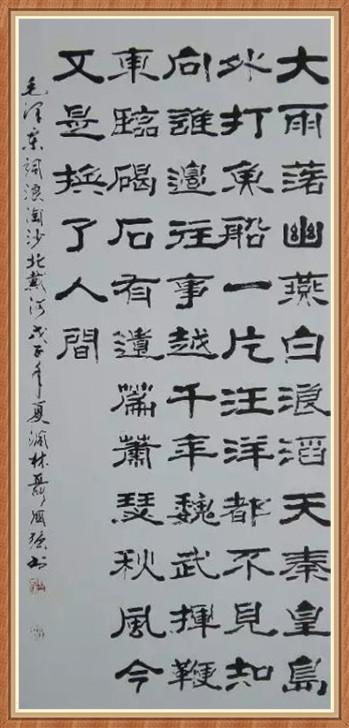 大雨落幽燕白浪滔天秦皇島
外打魚船一片汪洋都不見知
向誰邊往事越千年魏武揮鞭
東臨碣石有遺篇蕭瑟秋風今
又是換了人間
毛泽東詞浪淘沙北戴河戊子年夏